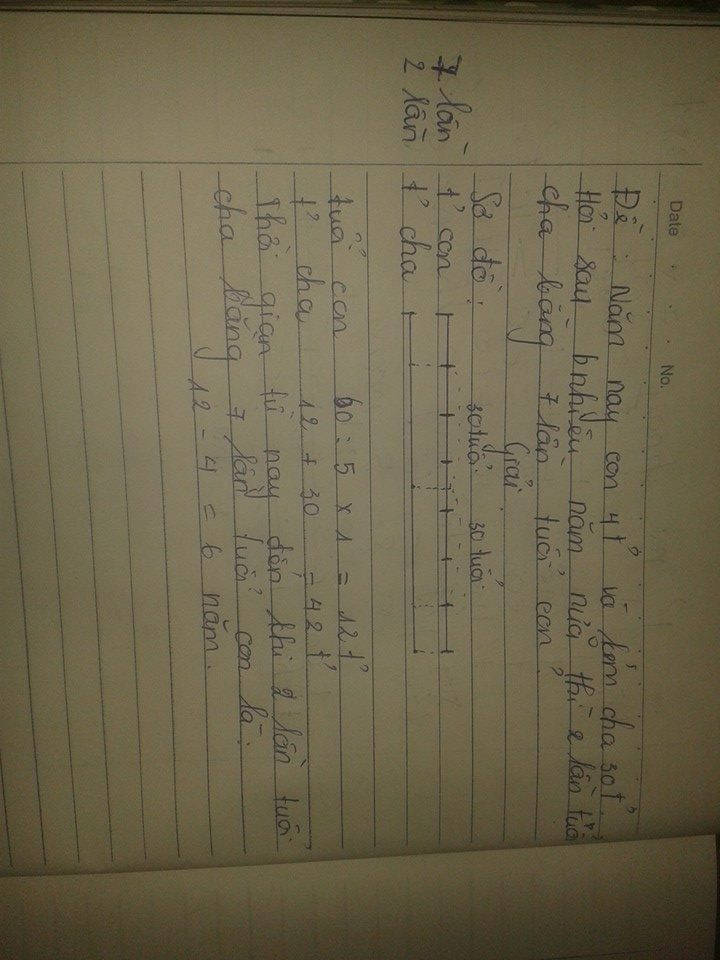 Date No.
Đề : Năm nay con 4 t' và kém cha 30 t'.
Hỏi sau bnhiêu năm nữa thì 2 lần tuổi
cha bằng 7 lần tuổi con ?
Giải
Sơ đồ : 30 tuổi 30 tuổi
7 lần t' con
2 lần t' cha
tuổi con 60 : 5 x 1 = 12 t'
t' cha 12 + 30 = 42 t'
Thời gian từ nay đến khi 2 lần tuổi
cha bằng 7 lần tuổi con là :
12 - 4 = 6 năm.